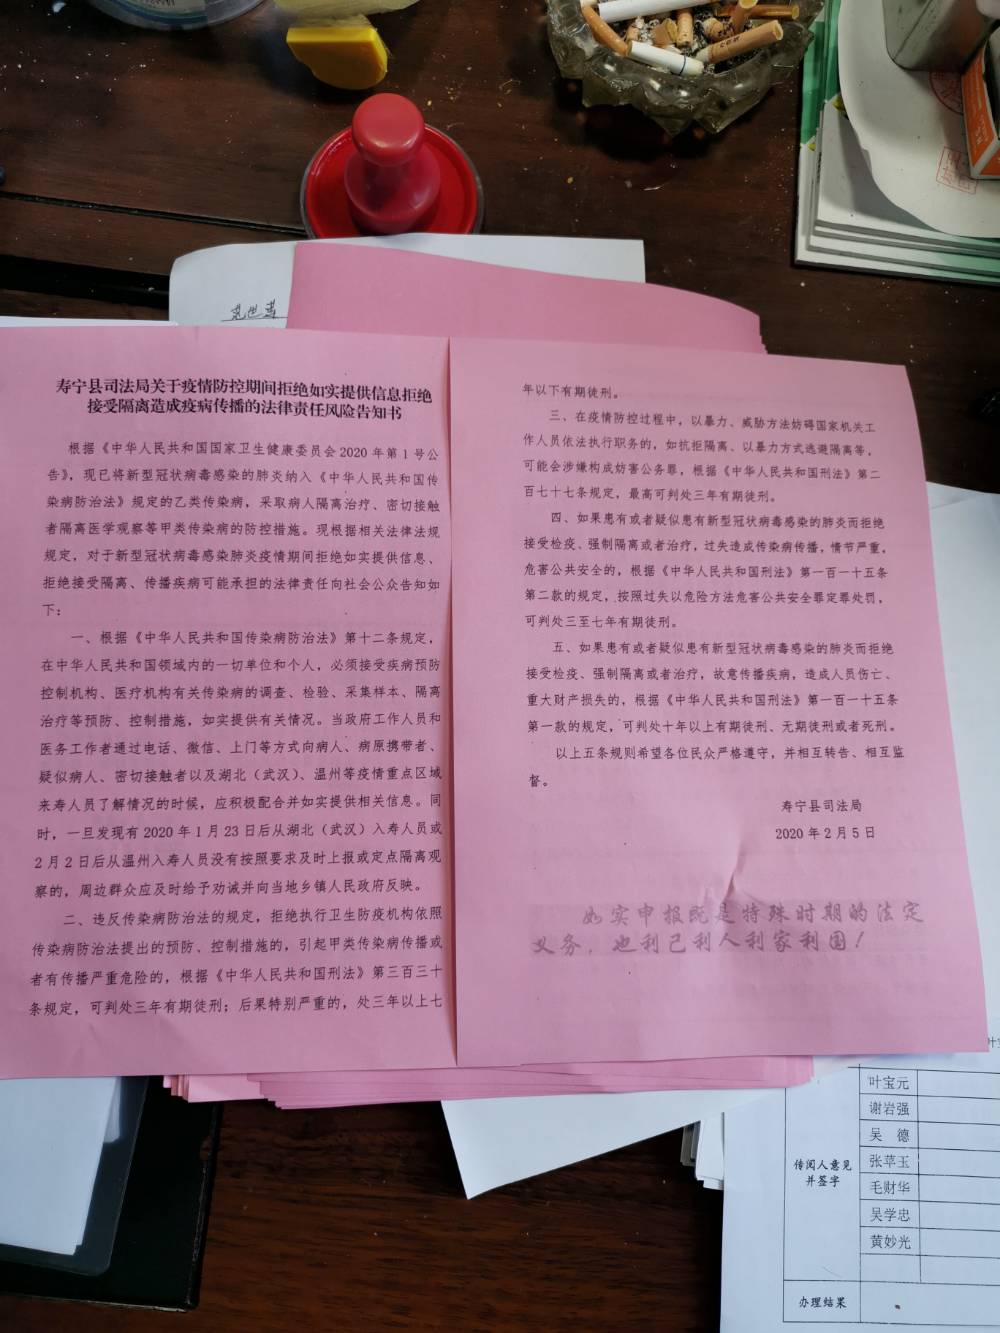 寿宁县司法局关于疫情防控期间拒绝如实提供信息拒绝
接受隔离造成疫病传播的法律责任风险告知书
根据《中华人民共和国国家卫生健康委员会2020年第1号公
告》，现已将新型冠状病毒感染的肺炎纳入《中华人民共和国传
染病防治法》规定的乙类传染病，采取病人隔离治疗、密切接触
者隔离医学观察等甲类传染病的防控措施。现根据相关法律法规
规定，对于新型冠状病毒感染肺炎疫情期间拒绝如实提供信息、
拒绝接受隔离、传播疾病可能承担的法律责任向社会公众告知如
下：
一、根据《中华人民共和国传染病防治法》第十二条规定，
在中华人民共和国领域内的一切单位和个人，必须接受疾病预防
控制机构、医疗机构有关传染病的调查、检验、采集样本、隔离
治疗等预防、控制措施，如实提供有关情况。当政府工作人员和
医务工作者通过电话、微信、上门等方式向病人、病原携带者、
疑似病人、密切接触者以及湖北（武汉）、温州等疫情重点区域
来寿人员了解情况的时候，应积极配合并如实提供相关信息。同
时，一旦发现有2020年1月23日后从湖北（武汉）入寿人员或
2月2日后从温州入寿人员没有按照要求及时上报或定点隔离观
察的，周边群众应及时给予劝诫并向当地乡镇人民政府反映。
二、违反传染病防治法的规定，拒绝执行卫生防疫机构依照
传染病防治法提出的预防、控制措施的，引起甲类传染病传播或
者有传播严重危险的，根据《中华人民共和国刑法》第三百三十
条规定，可判处三年有期徒刑；后果特别严重的，处三年以上七
年以下有期徒刑。
三、在疫情防控过程中，以暴力、威胁方法妨碍国家机关工
作人员依法执行职务的，如抗拒隔离、以暴力方式逃避隔离等，
可能会涉嫌构成妨害公务罪，根据《中华人民共和国刑法》第二
百七十七条规定，最高可判处三年有期徒刑。
四、如果患有或者疑似患有新型冠状病毒感染的肺炎而拒绝
接受检疫、强制隔离或者治疗，过失造成传染病传播，情节严重，
危害公共安全的，根据《中华人民共和国刑法》第一百一十五条
第二款的规定，按照过失以危险方法危害公共安全罪定罪处罚，
可判处三至七年有期徒刑。
五、如果患有或者疑似患有新型冠状病毒感染的肺炎而拒绝
接受检疫、强制隔离或者治疗，故意传播疾病，造成人员伤亡、
重大财产损失的，根据《中华人民共和国刑法》第一百一十五条
第一款的规定，可判处十年以上有期徒刑、无期徒刑或者死刑。
以上五条规则希望各位民众严格遵守，并相互转告、相互监
督。
寿宁县司法局
2020年2月5日
如实申报既是特殊时期的法定
义务，也利己利人利家利国！
传阅人意见
并签字
叶宝元
谢岩强
吴 德
张苹玉
毛财华
吴学忠
黄妙光
办理结果